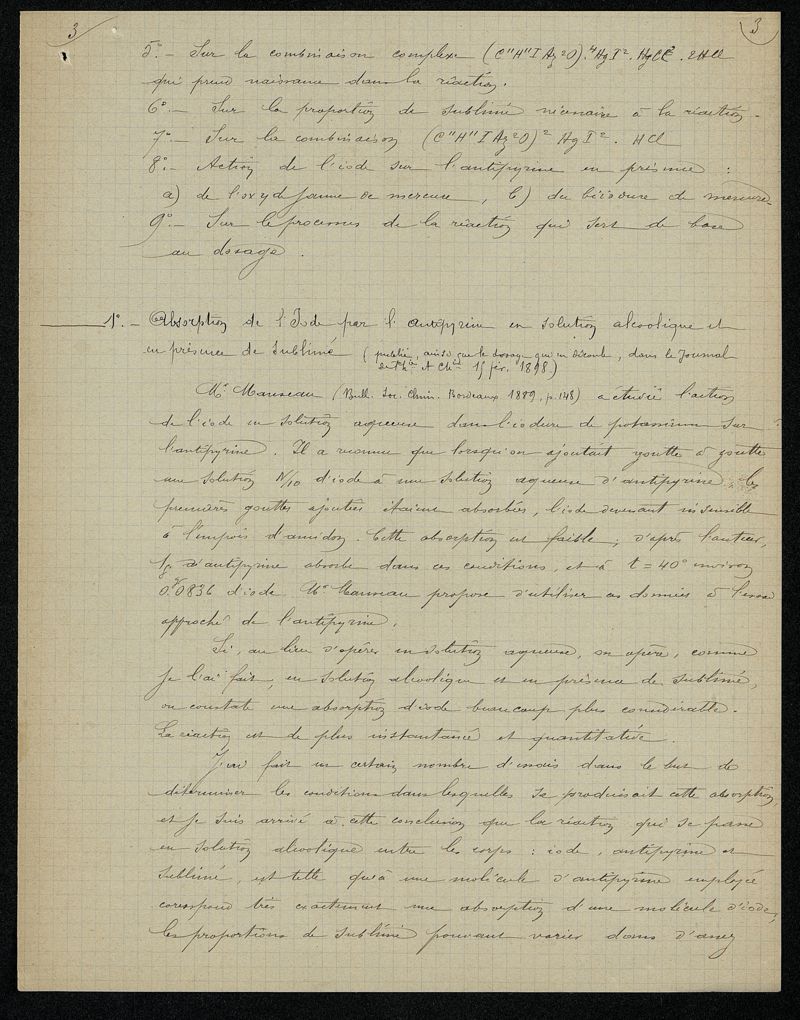 3 3
5°.- Sur la combinaison complexe (C"H"IAz²O)⁴. HgI². HgCl². 2HCl
qui prend naissance dans la réaction.
6°.- Sur la proportion de sublimé nécessaire à la réaction.
7°.- Sur la combinaison (C"H"IAz²O)² HgI². HCl
8°.- Action de l'iode sur l'antipyrine en présence :
a) de l'oxyde jaune de mercure, b) du biiodure de mercure.
9°.- Sur le processus de la réaction qui sert de base
au dosage.
1°.- Absorption de l'Iode par l'antipyrine en solution alcoolique et
en présence de sublimé (publiée, ainsi que le dosage qui en découle, dans le Journal
de Phie et Chie 15 fév. 1898)
Mr Manseau (Bull. Soc. Chim. Bordeaux. 1889, p. 148) a étudié l'action
de l'iode en solution aqueuse dans l'iodure de potassium sur
l'antipyrine. Il a reconnu que lorsqu'on ajoutait goutte à goutte
une solution N/10 d'iode à une solution aqueuse d'antipyrine les
premières gouttes ajoutées étaient absorbées, l'iode devenant insensible
à l'empois d'amidon. Cette absorption est faible; d'après l'auteur,
1g d'antipyrine absorbe dans ces conditions, et à t = 40° environ
0g,0836 d'iode. Mr Manseau propose d'utiliser ces données à l'essai
approché de l'antipyrine.
Si, au lieu d'opérer en solution aqueuse, on opère, comme
je l'ai fait, en solution alcoolique et en présence de sublimé,
on constate une absorption d'iode beaucoup plus considérable.
La réaction est de plus instantanée et quantitative.
J'ai fait un certain nombre d'essais dans le but de
déterminer les conditions dans lesquelles se produisait cette absorption
et je suis arrivé à cette conclusion que la réaction qui se passe
en solution alcoolique entre les corps : iode, antipyrine et
sublimé, est telle qu'à une molécule d'antipyrine employée
correspond très exactement une absorption d'une molécule d'iode,
les proportions de sublimé pouvant varier dans d'assez